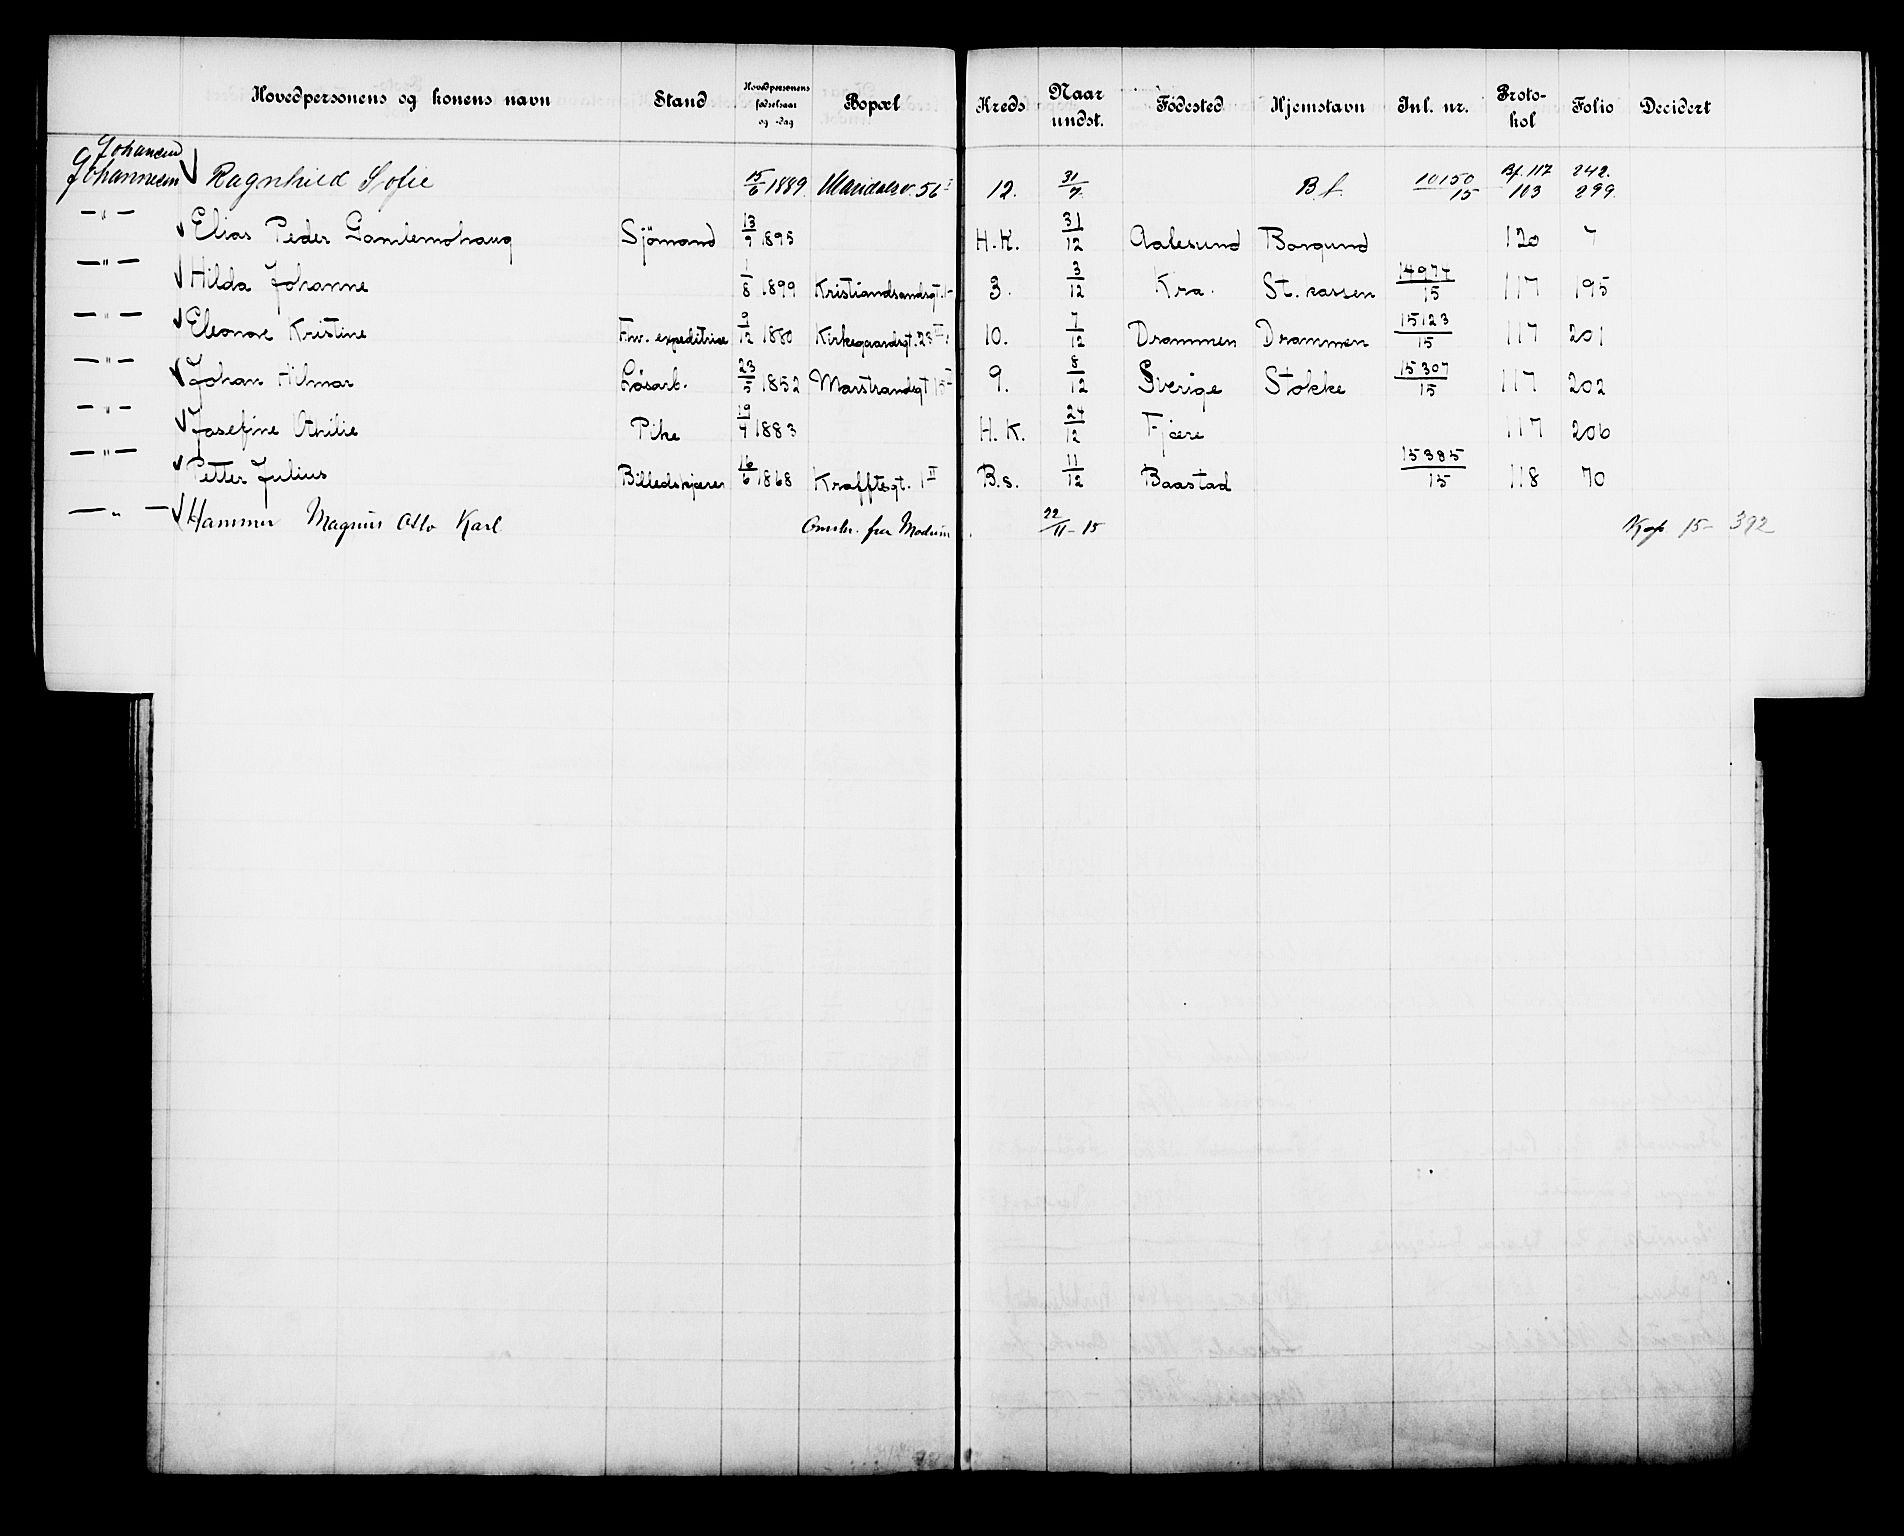 Hovedpersonens og konens navn Stand Hovedpersonens fødselsaar og -dag Bopæl Kreds Naar undst. Födested Hjemstavn Inl. nr. Proto-kol Folio Decidert
Johansen
Johannesen √ Ragnhild Sofie 15/6 1889. Maridalsv. 56 I 12. 31/7. B.f. 10150/15 Bf. 117 242.
103 299.
—"— √ Elias Peder Gamlemshaug Sjömand 13/9 1895 H.K. 31/12 Aalesund Borgund 120 7
—"— √ Hilda Johanne 1/8 1899 Kristiandsandsgt. 1- 3. 3/12 Kra. St.kassen 14974/15 117 195
—"— √ Eleonore Kristine Fhv. expeditrise 9/12 1880 Kirkegaardsgt. 23 II. 10. 7/12 Drammen Drammen 15123/15 117 201
—"— √ Johan Hilmar Lösarb. 23/5 1852 Marstrandsgt 15 I 9. 8/12 Sverige Stokke 15307/15 117 202
—"— √ Josefine Othilie Pike 19/7 1883 H.K. 24/12 Fjære 117 206
—"— √ Petter Julius Billedskjærer 16/6 1868 Krafftsgt. 1 II B.s. 11/12 Baastad 15385/15 118 70
—"— √ Hammer Magnus Otto Karl Omskr. fra Modum 22/11-15 Kop. 15- 392